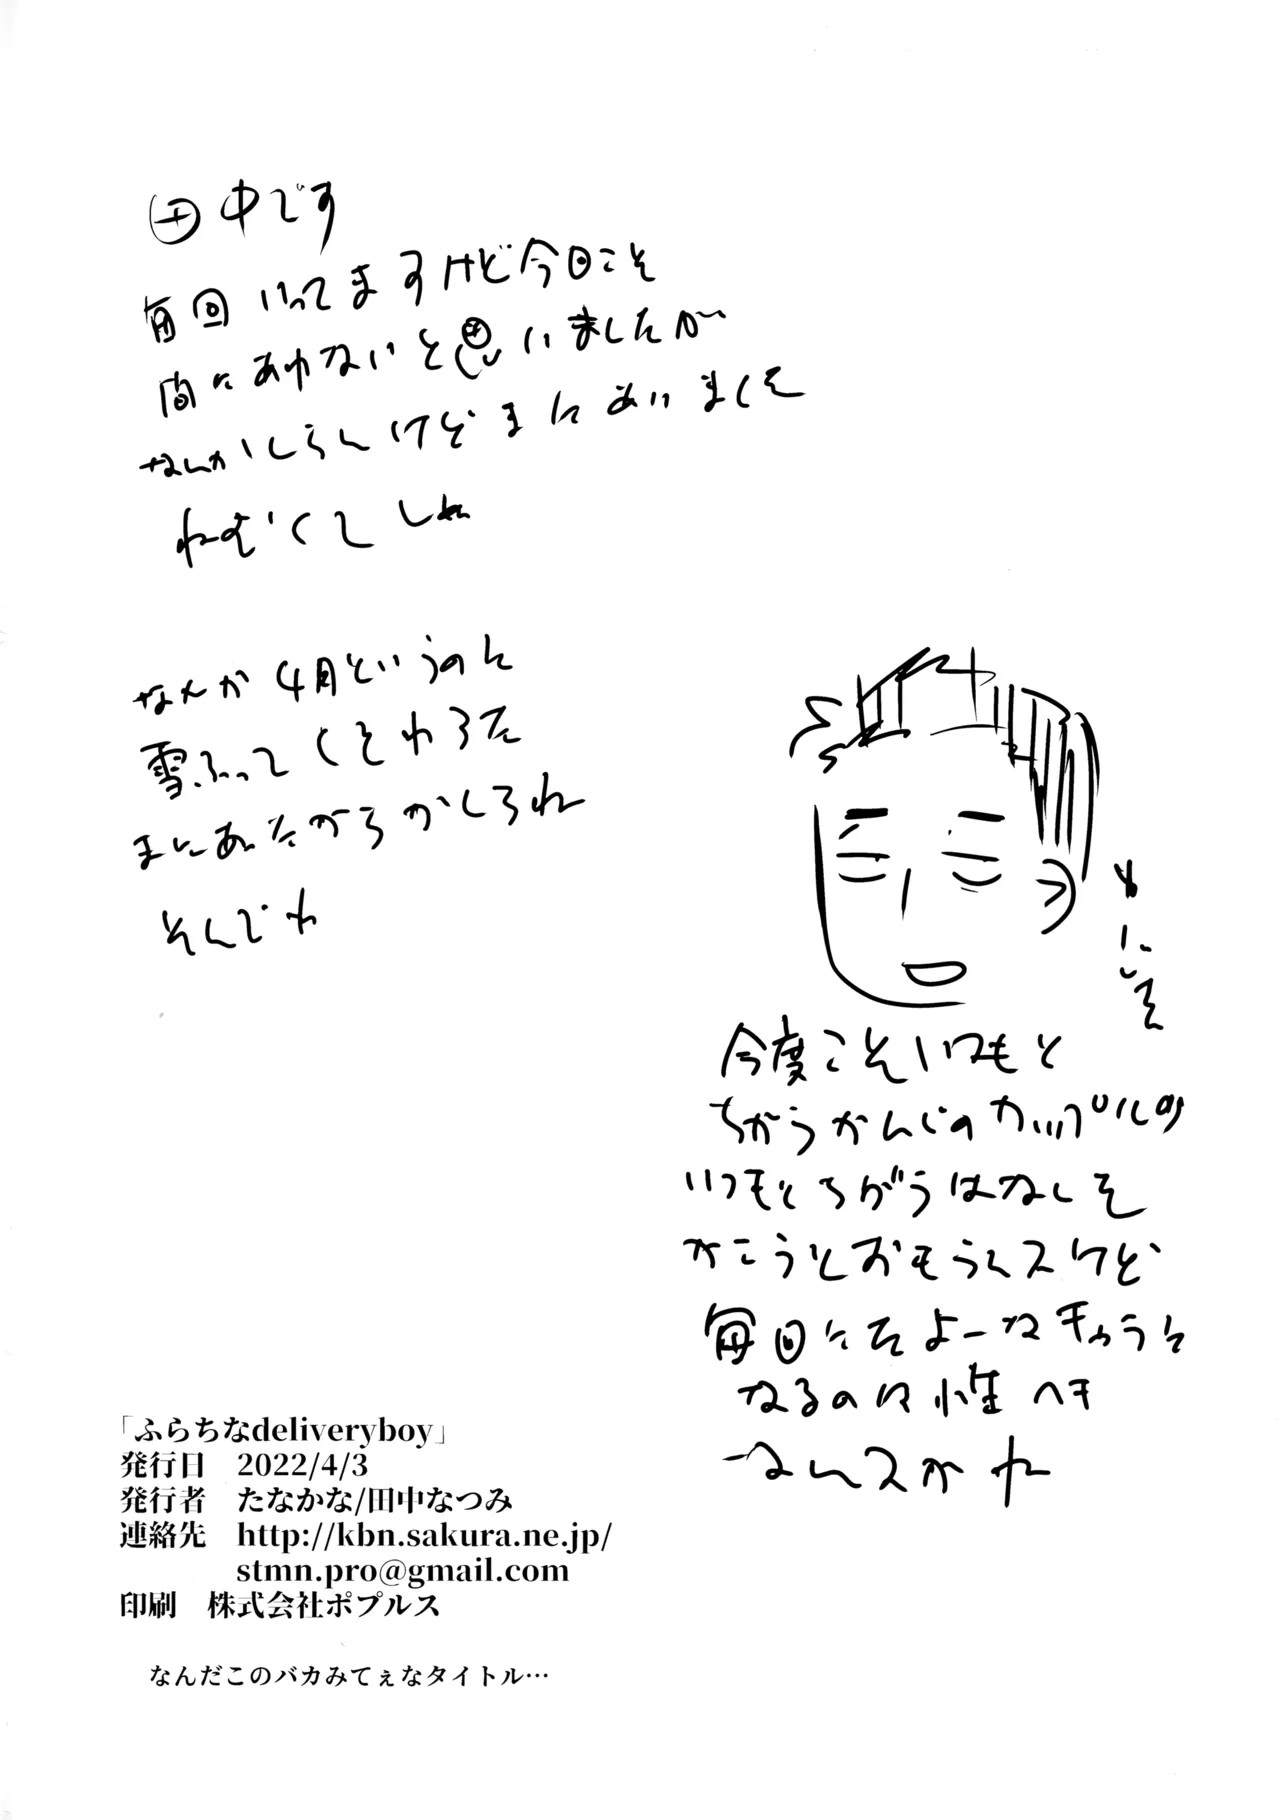 田中です
毎回いってますけど今回こそ
間にあわないと思いましたが
なんかしらんけどまにあいました
ねむくてしぬ
なんか4月というのに
雪ふってくそわろた
まにあったからかしらね
そんでわ
今度こそいつもと
ちがうかんじのカップルの
いつもとちがうはなしを
かこうとおもうんスけど
毎回にたよーな
なるのは性ヘキ
なんスかね
「ふらちなdeliveryboy」
発行日 2022/4/3
発行者 たなかな/田中なつみ
連絡先 http://kbn.sakura.ne.jp/
stmn.pro@gmail.com
印刷 株式会社ポプルス
なんだこのバカみてぇなタイトル…